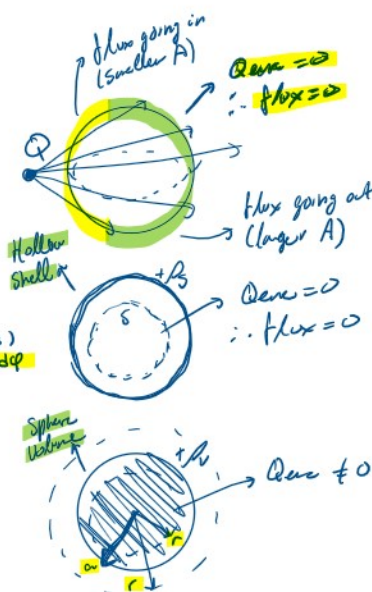 flux going in
(smaller A)
Qenc = 0
∴ flux = 0
Q
flux going out
(larger A)
Hollow
Shell
+ρs
Qenc = 0
∴ flux = 0
s
)
dφ
Sphere
Volume
+ρv
Qenc ≠ 0
a
r
r